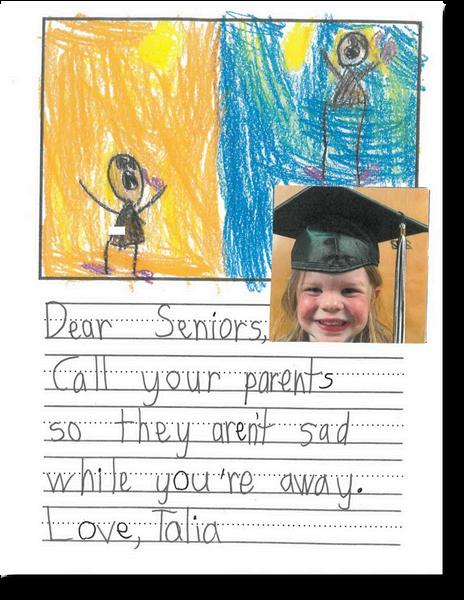 Dear Seniors,
Call your parents
so they aren't sad
while you're away.
Love, Talia